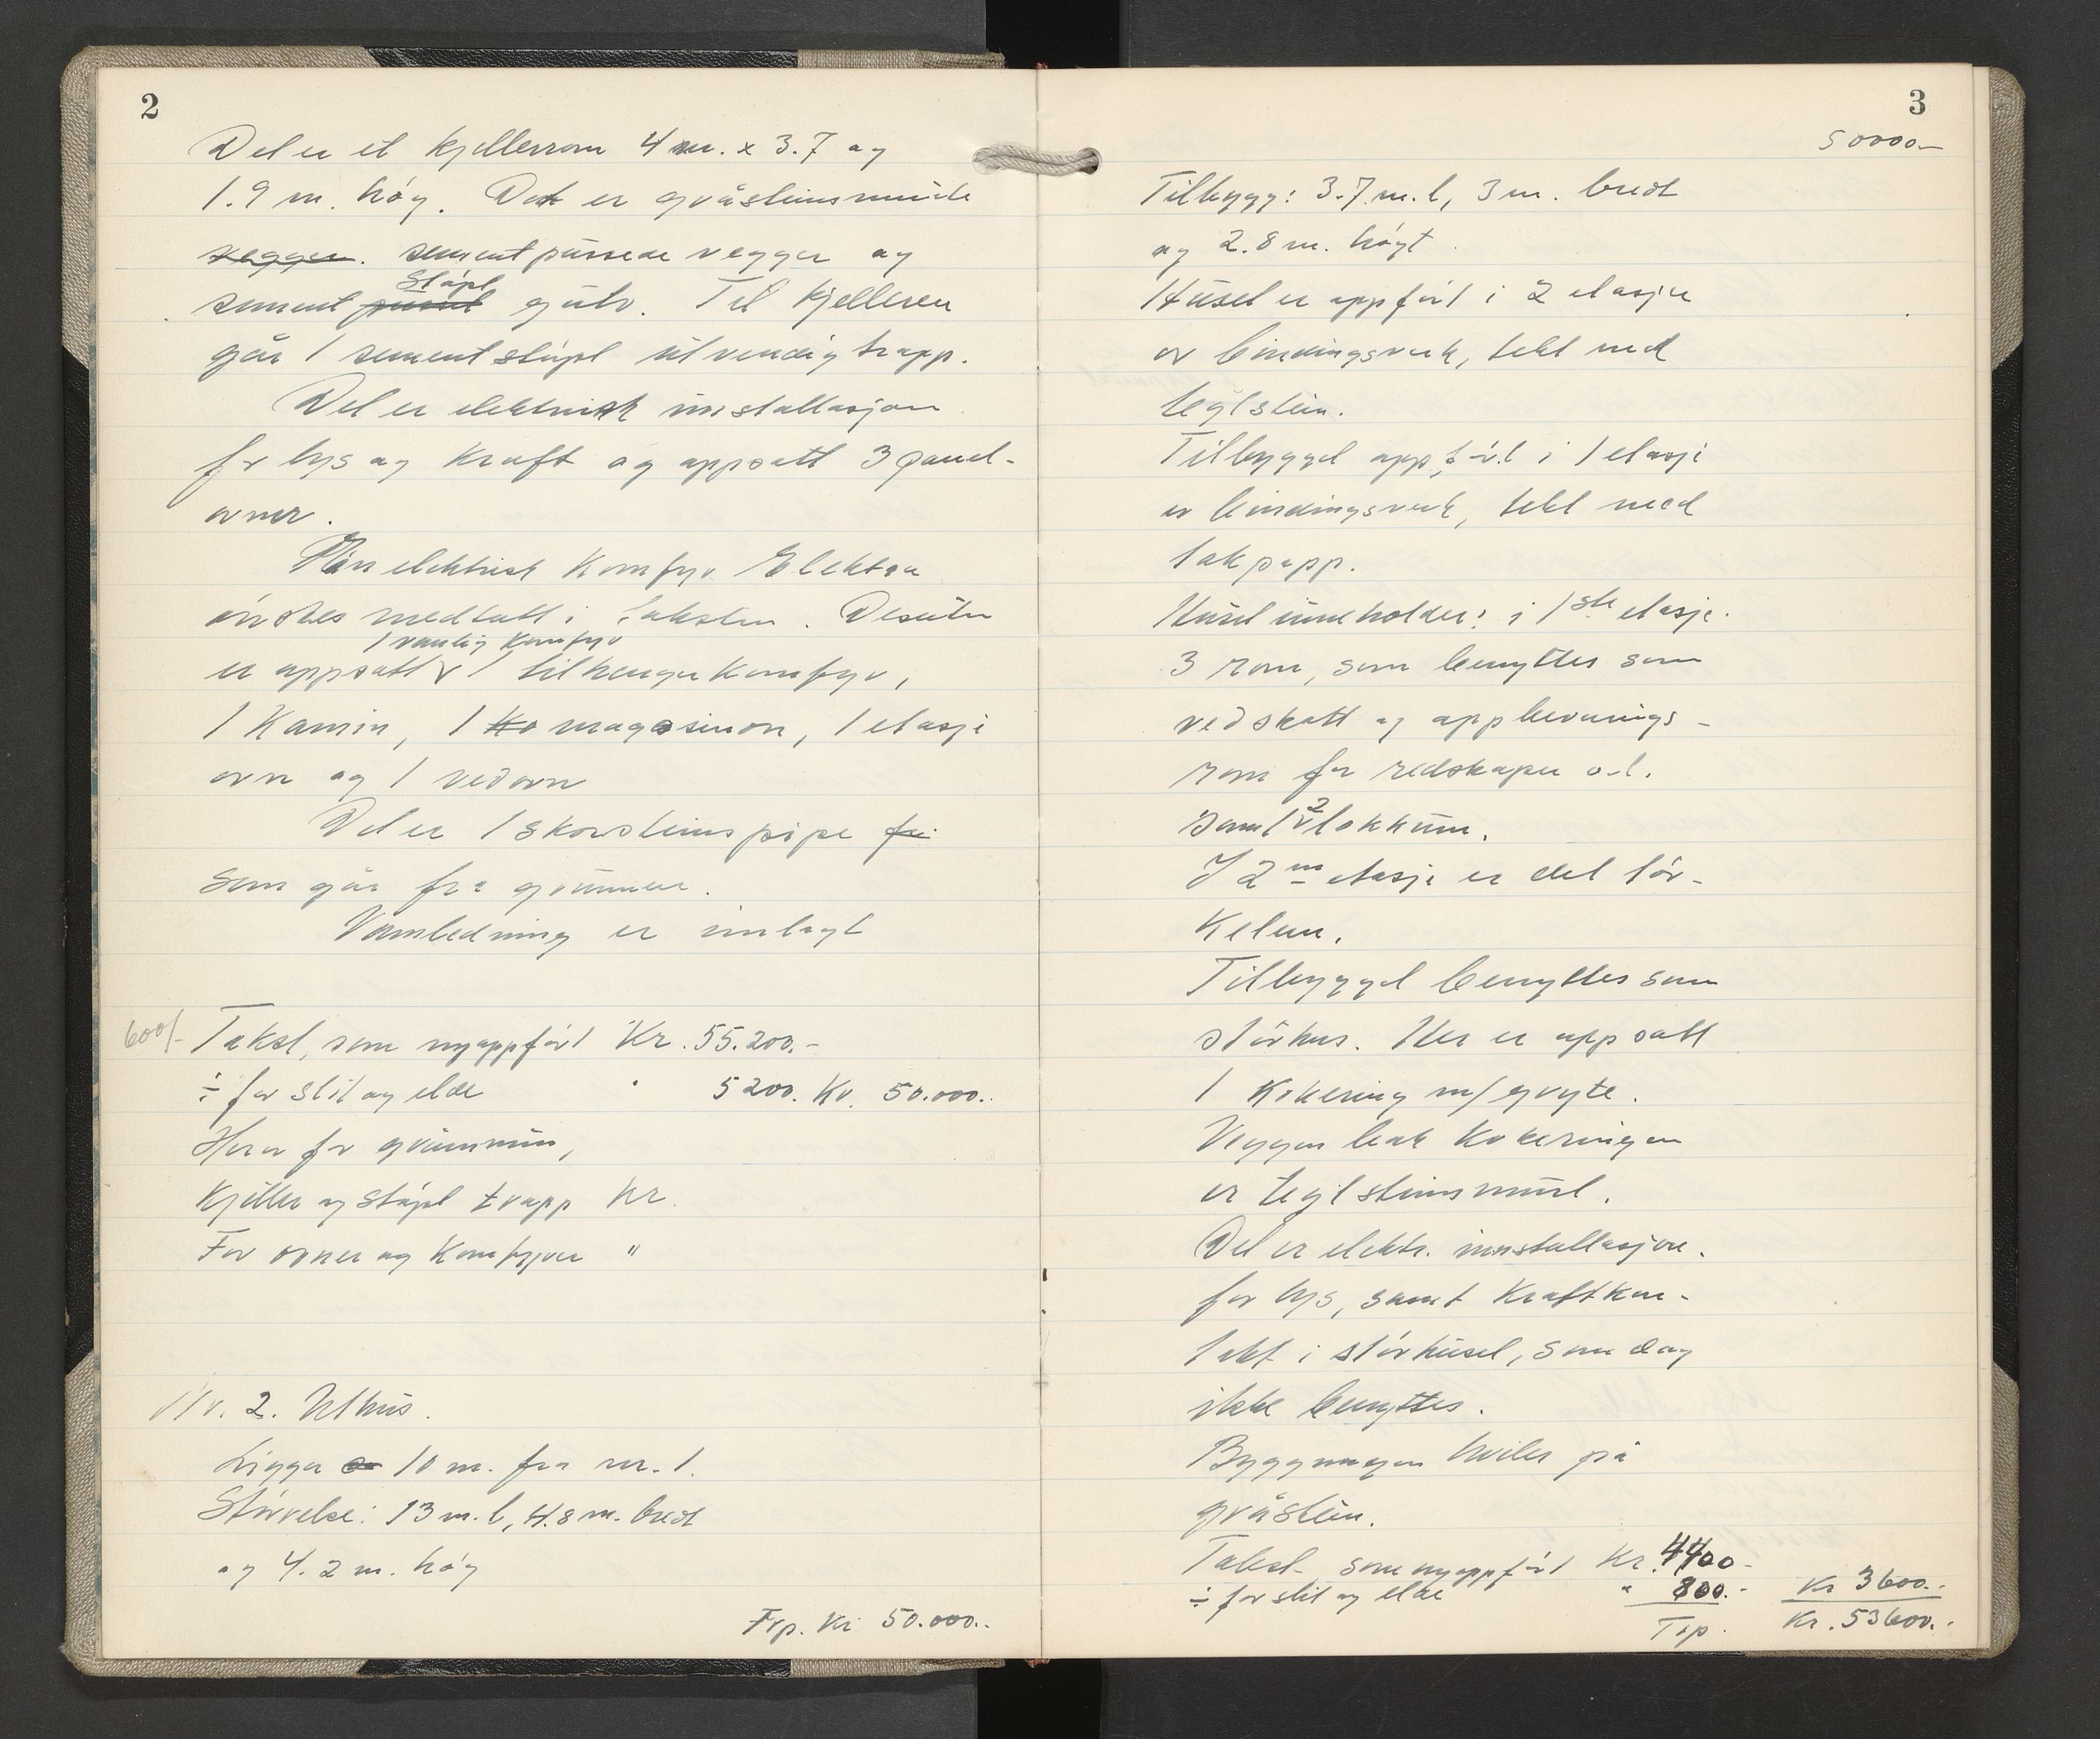 2
Det er et kjellerrom 4 m. x 3.7 og
1.9 m. høg. Det er gråsteinsmurte
vegger. sementpussede vegger og
Støpt
sement pusset gulv. Til kjelleren
går 1 sementstøpt utvendig trapp.
Det er elektrisk innstallasjon
for lys og kraft og oppsatt 3 panel-
ovner.
elektrisk Komfyr Elektra
ønskes medtatt i taksten. Desuten
1 vanlig Komfyr
er oppsatt 1 tilhengerkomfyr,
1 Kamin, 1 Ko magasinovn, 1 etasje
ovn og 1 vedovn
Det er 1 skorsteinspipe fr
som går fra grunnen.
Vannledning er innlagt
600/-
Takst, som nyoppført Kr. 55.200.-
÷ for slit og elde " 5200. Kr. 50.000..
Herav for grunnmur,
Kjeller og støpt trapp Kr.
For ovner og Komfyrer "
Nr. 2. Uthus.
Ligger 10 m. fra nr. 1.
Størrelse: 13 m. l, 4.8 m. bredt
og 4.2 m. høg
Trp. Kr 50.000..
3
50000.-
Tilbygg: 3.7 m. l, 3 m. bredt
og 2.8 m. høgt.
Huset er oppført i 2 etasjer
av bindingsverk, tekt med
teglstein.
Tilbygget oppført i 1 etasje
av bindingsverk, tekt med
takpapp.
Huset inneholder: i 1ste etasje.
3 rom, som benyttes som
vedskott og oppbevarings-
rom for redskaper o.l.
2
samt lokkum.
I 2nn etasje er det tør-
keloen.
Tilbygget benyttes som
størhus. Her er oppsatt
1 Kokering m/gryte.
Veggen bak Kokeringen
er teglsteinsmurt.
Det er elektr. innstallasjon.
for lys, samt kraftkon-
takt i størhuset, som dog
ikke benyttes.
Byggningen hviler på
gråstein.
Takst som nyoppført Kr. 4400-
÷ for slit og elde " 800.- Kr 3600.-
Trp. Kr. 53600.-